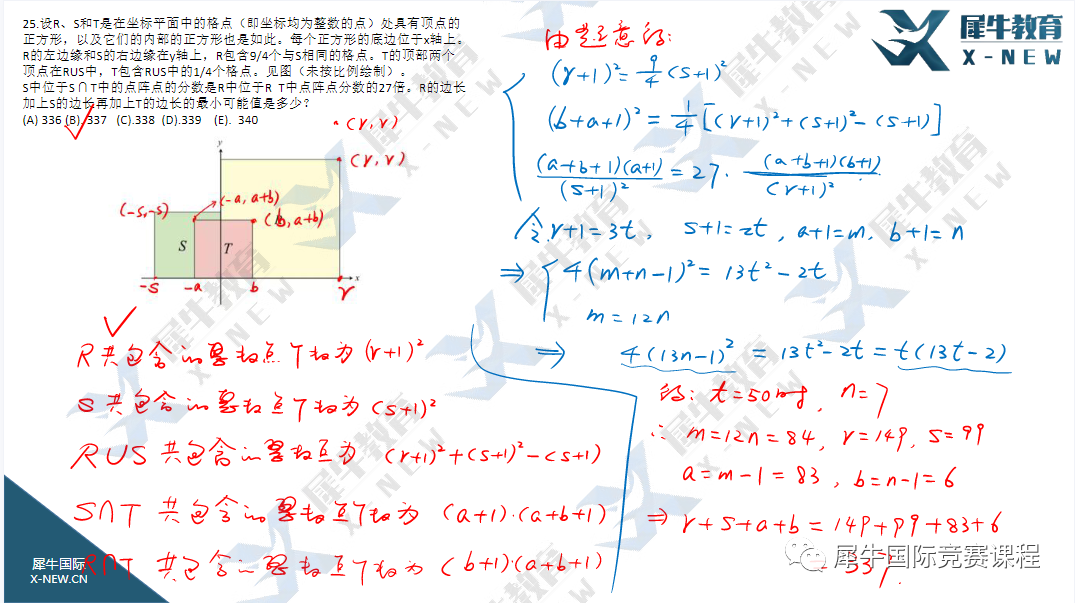 25.设R、S和T是在坐标平面中的格点（即坐标均为整数的点）处具有顶点的
正方形，以及它们的内部的正方形也是如此。每个正方形的底边位于x轴上。
R的左边缘和S的右边缘在y轴上，R包含9/4个与S相同的格点。T的顶部两个
顶点在RUS中，T包含RUS中的1/4个格点。见图（未按比例绘制）。
S中位于S∩T中的点阵点的分数是R中位于R T中点阵点分数的27倍。R的边长
加上S的边长再加上T的边长的最小可能值是多少？
(A) 336 (B). 337 (C).338 (D).339 (E). 340
(r, r)
y
(r, r)
(-s,-s)
(-a, a+b)
(b, a+b)
S
T
x
-s
-a
b
r
R共包含的格点个数为(r+1)²
S共包含的格点个数为(s+1)²
RUS 共包含的为 (r+1)²+(s+1)²-(s+1)
S∩T 共包含的个数为 (a+1)·(a+b+1)
R∩T 共包含的个数为 (b+1)·(a+b+1)
由题意得:
(r+1)²=9/4(s+1)²
(b+a+1)²=1/4[(r+1)²+(s+1)²-(s+1)]
(a+b+1)(a+1)/(s+1)²=27·(a+b+1)(b+1)/(r+1)²
令 r+1=3t, s+1=2t, a+1=m, b+1=n
⇒ 4(m+n-1)²=13t²-2t
m=12n
⇒ 4(13n-1)²=13t²-2t=t(13t-2)
得: t=50时, n=7
∴ m=12n=84, r=149, s=99
a=m-1=83, b=n-1=6
⇒ r+s+a+b=149+99+83+6
=337.
犀牛教育
X-NEW
犀牛国际
X-NEW.CN
犀牛国际竞赛课程